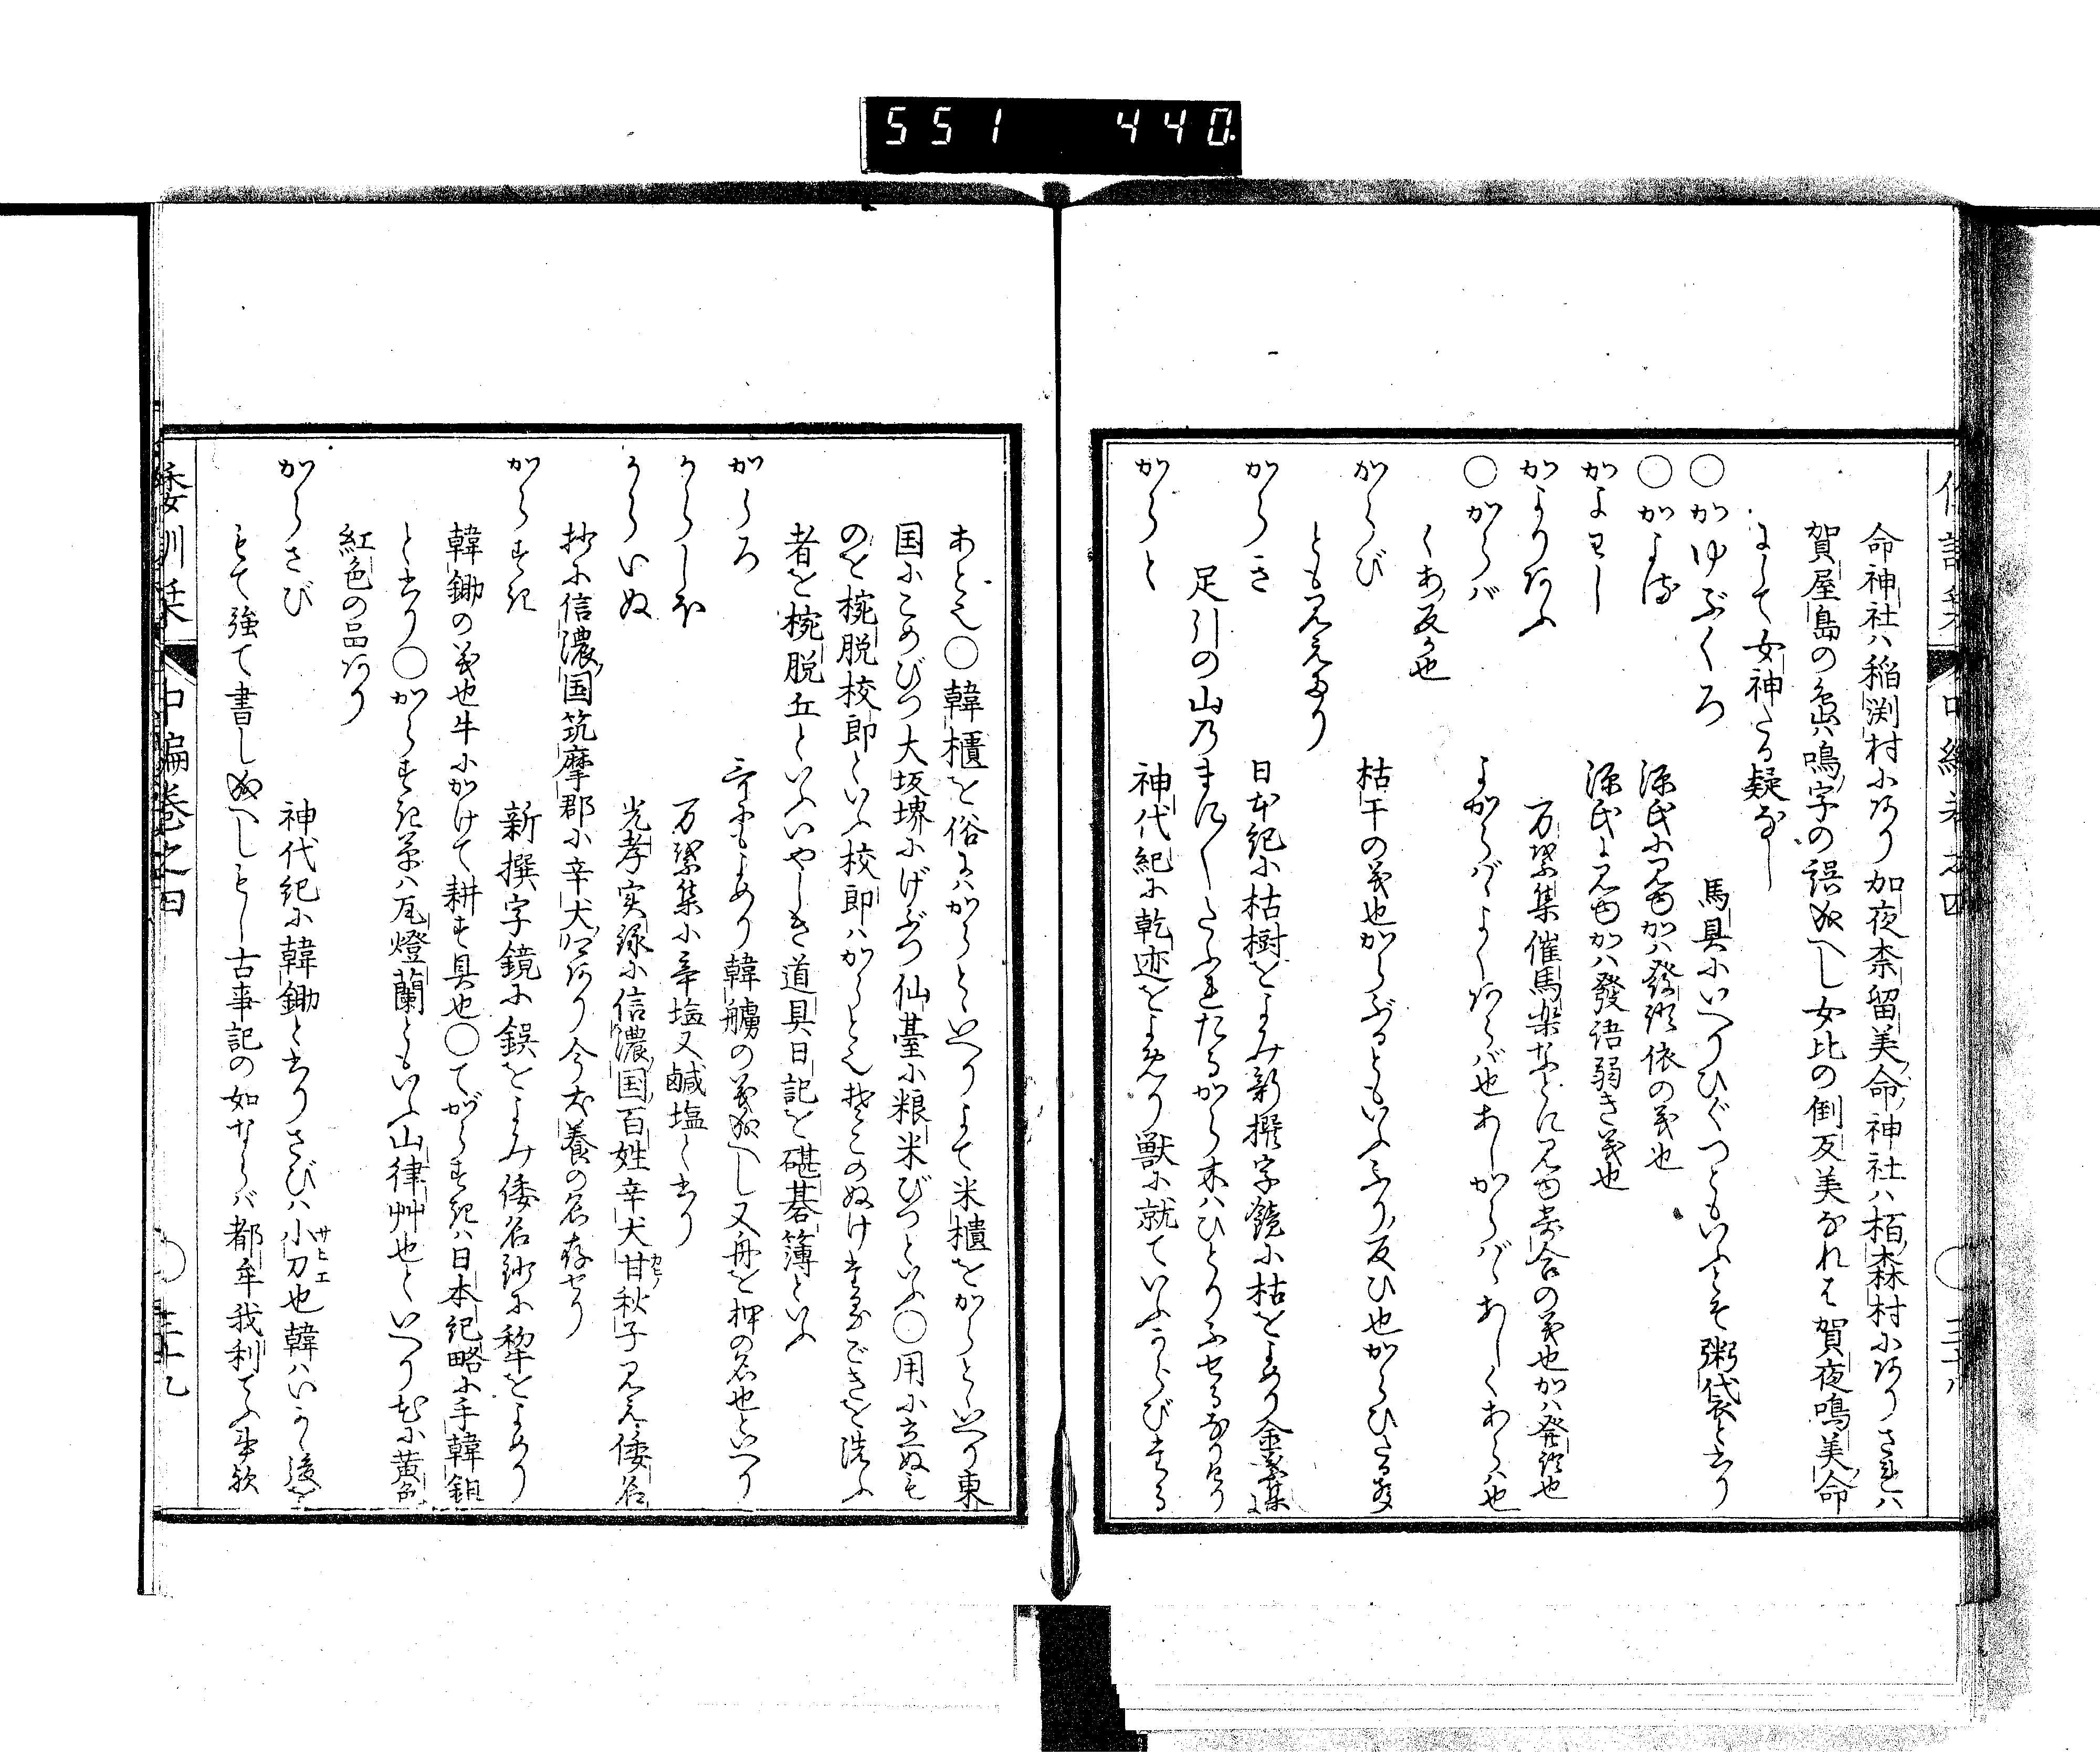 551 440
命神社ハ稲渕村にあり加夜奈留美命ノ神社ハ栢森村にありされハ
賀屋島の色ハ鳴ノ字の誤成へし女比の倒反美なれは賀夜鳴美ノ命
にて女神たる疑なし
○かゆぶくろ 馬具にいへりひぐつともいふとそ粥袋と書り
○かよる 源氏に見ゆかハ發語依の義也
かよわし 源氏に見ゆかハ發語弱き義也
かよりあふ 万葉集催馬楽などに見ゆ寄合の義也かハ発語也
○からバ よからバよくあらバ也あしからバあしくあらハ也
くあ反か也
からび 枯干の義也からぶるともいふふり反ひ也からひたる声
とも見えたり
からき 日本紀に枯樹をよみ新撰字鏡に枯をよめり金葉集に
足引の山乃まに〱たふれたるから木ハひとりふせるなりけり
からと 神代紀に乾迹をよめり獣に就ていふからびたる
あと也○韓櫃を俗にハからとといへりよて米櫃をからとといへり東
国にこめびつ大坂堺にげぶつ仙臺に粮米びつといふ○用に立ぬも
のを椀脱校郎といふ校郎ハからと也そこのぬけたるごきを洗ふ
者を椀脱丘といふいやしき道具日記を碪碁簿といふ
からろ 哥にもよめり韓艣の義成へし又舟を押の名也といへり
からしほ 万葉集に辛塩又鹹塩と書り
からいぬ 光孝実録に信濃ノ国百姓辛犬甘ノ秋子見え倭名
抄に信濃ノ国筑摩郡に辛犬ハあり今犬養の名存せり
からすき 新撰字鏡に鋘をよみ倭名鈔に犂をよめり
韓鋤の義也牛にかけて耕す具也○てがらすきハ日本紀略に手韓鉏
と書り○からすき草ハ瓦燈蘭ともいふ山律艸也といへり花に黄色
紅色の品あり
からさび 神代紀に韓鋤と書りさびハ小刀也韓ハいかく後を
もて強て書し成へしもし古事記の如ならバ都牟我利てふ事歟
倭訓栞 中編巻之四 ○ 三十九